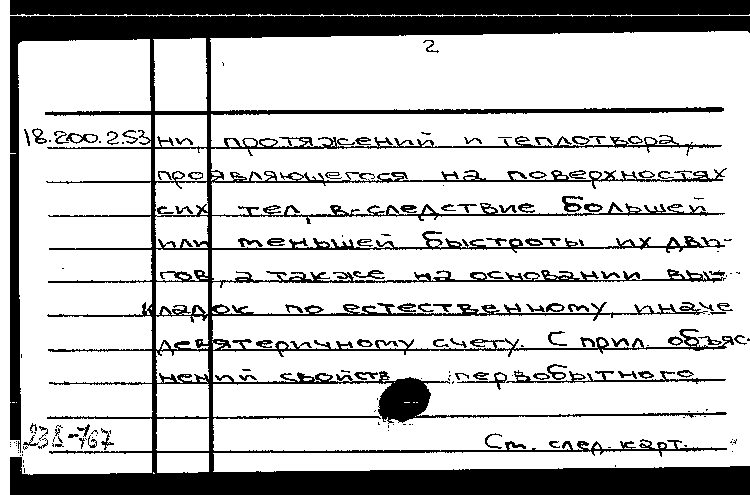 2
18.200.253 ни, протяжений и теплотвора,
проявляющегося на поверхностях
сих тел, в-следствие большей
или меньшей быстроты их дви-
гов, а также на основании вы-
кладок по естественному, иначе
девятеричному счету. С прил. объяс-
нений свойств первобытного
238-767
См. след. карт.